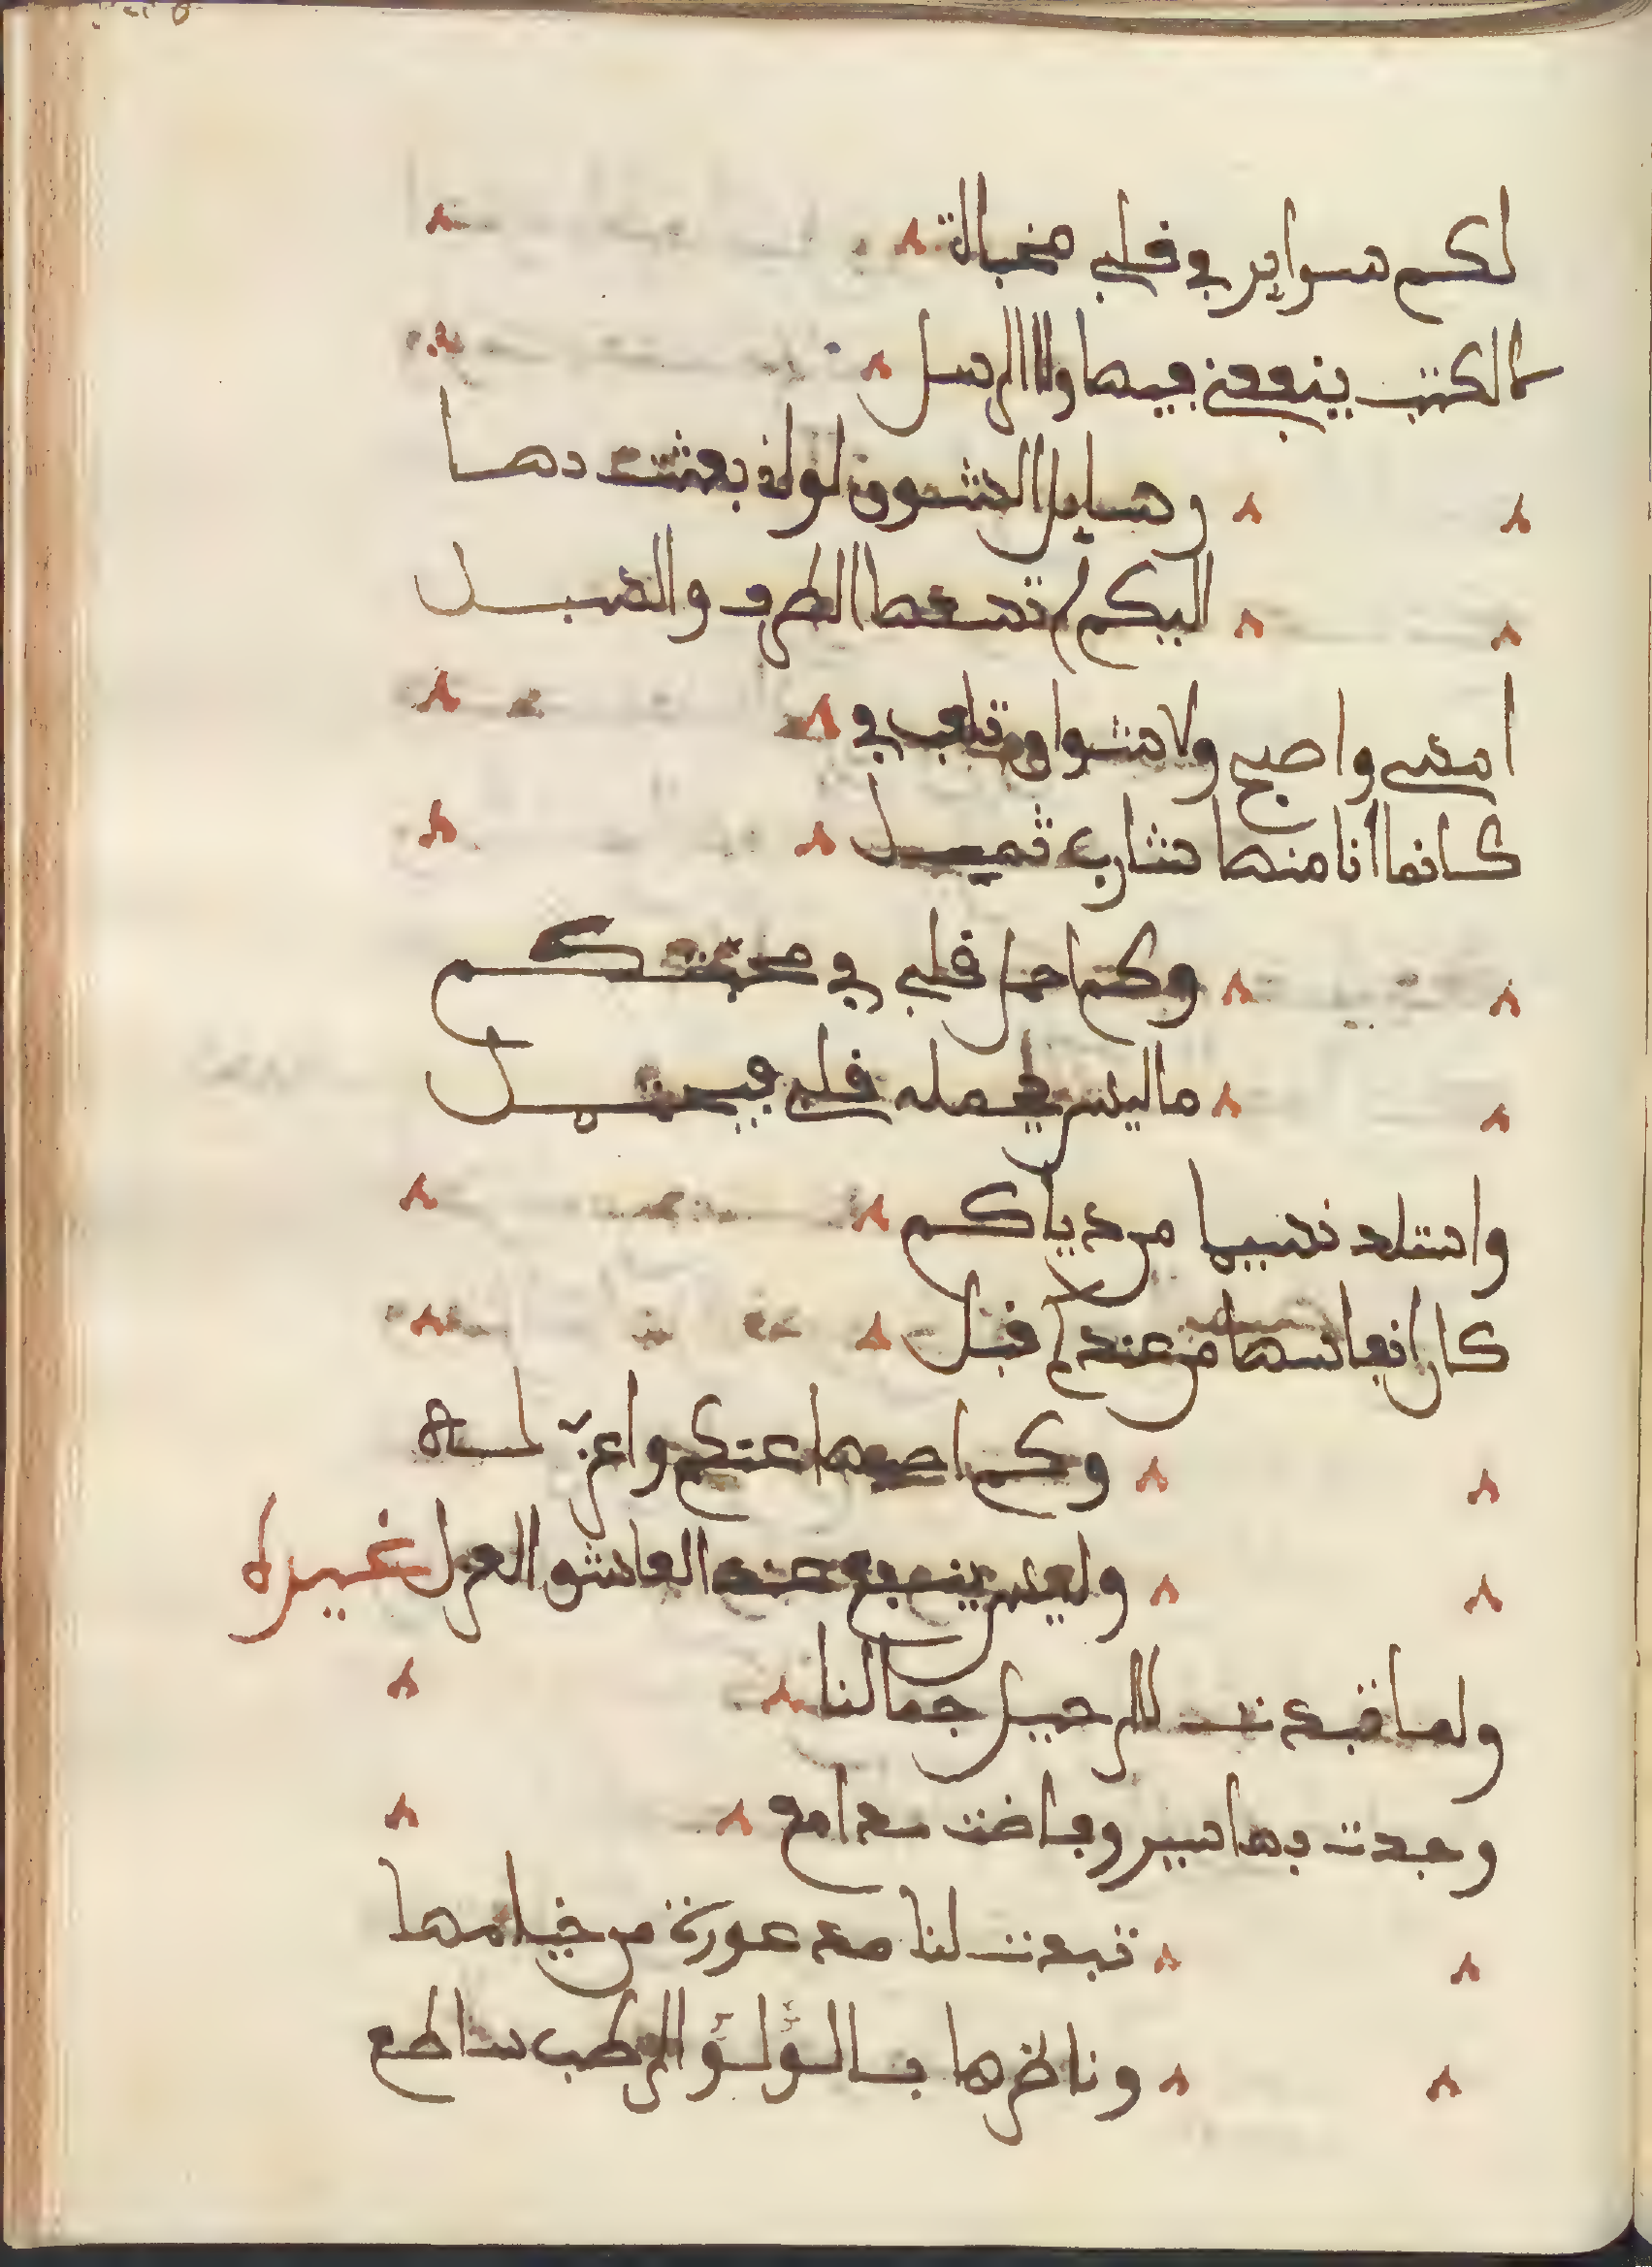 لكم سراير في قلبي مخبالة
لا الكتب ينفعني فيها ولا الرسل
رسايل الشوق لو اني بعثت بها
اليكم لم تسعها الطرق والسبل
امسي واصبح والاشواق تلعب بي
كانما انا منها شارب ثمل
وكم احمل قلبي في محبتكم
ما ليس يحمله قلب فيحتمل
واستلد نسيما من دياركم
كان انفاسها من عندكم قبل
وكم اصبرها عنكم واعزله
وليس ينفع عند العاشق العزل غيره
ولما تبدت للرحيل جمالنا
وجد بنا سير وفاضت مدامع
تبدت لنا مدعورة من خيامها
وناظرها باللؤلؤ الرطب ساطع